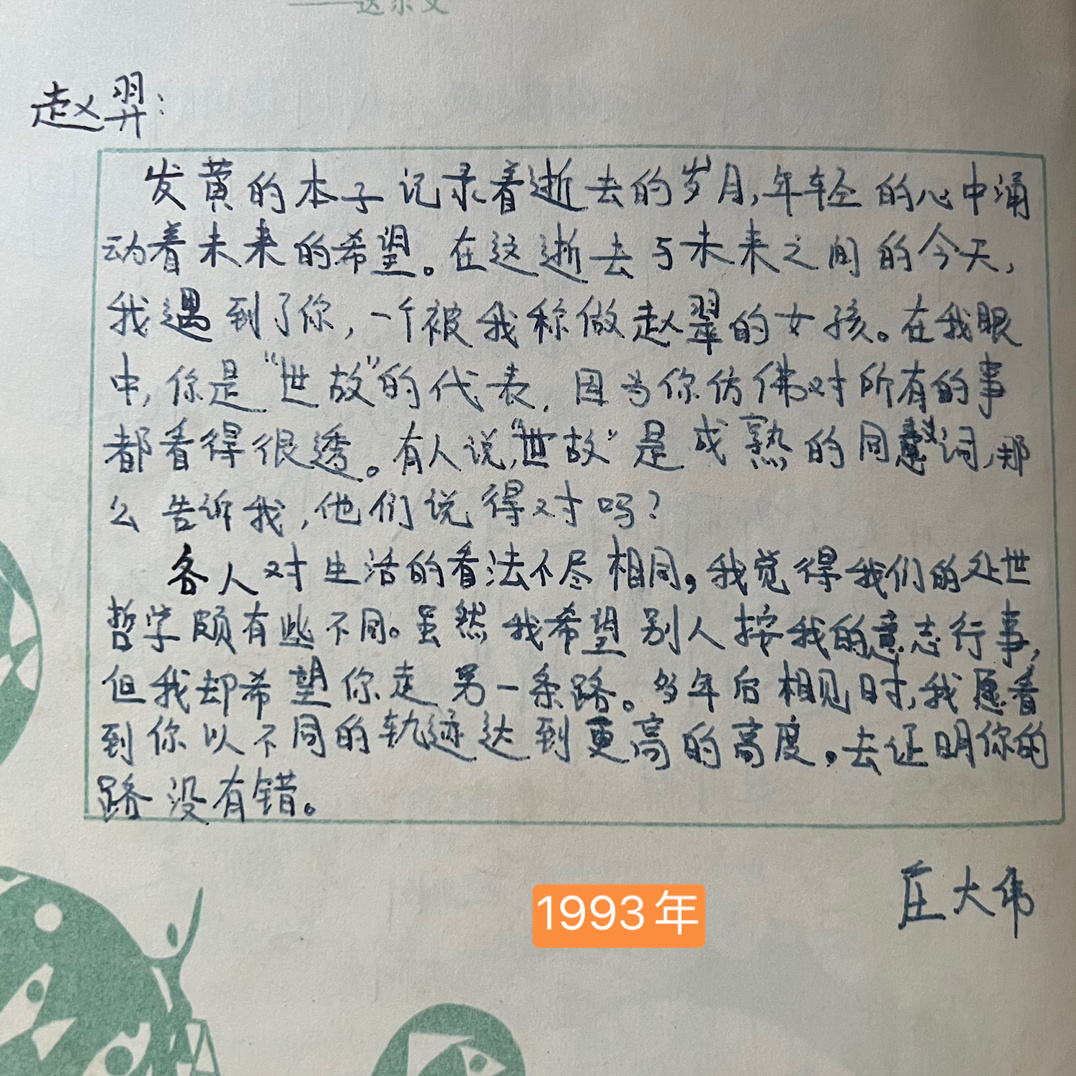 ——达尔文
赵羿:
发黄的本子记录着逝去的岁月,年轻的心中涌
动着未来的希望。在这逝去与未来之间的今天,
我遇到了你,一个被我称做赵翠的女孩。在我眼
中,你是“世故”的代表,因为你仿佛对所有的事
都看得很透。有人说,“世故”是成熟的同意词,那
么告诉我,他们说得对吗?
各人对生活的看法不尽相同。我觉得我们的处世
哲学颇有些不同。虽然我希望别人按我的意志行事,
但我却希望你走另一条路。多年后相见时,我愿看
到你以不同的轨迹达到更高的高度。去证明你的
路没有错。
庄大伟
1993年